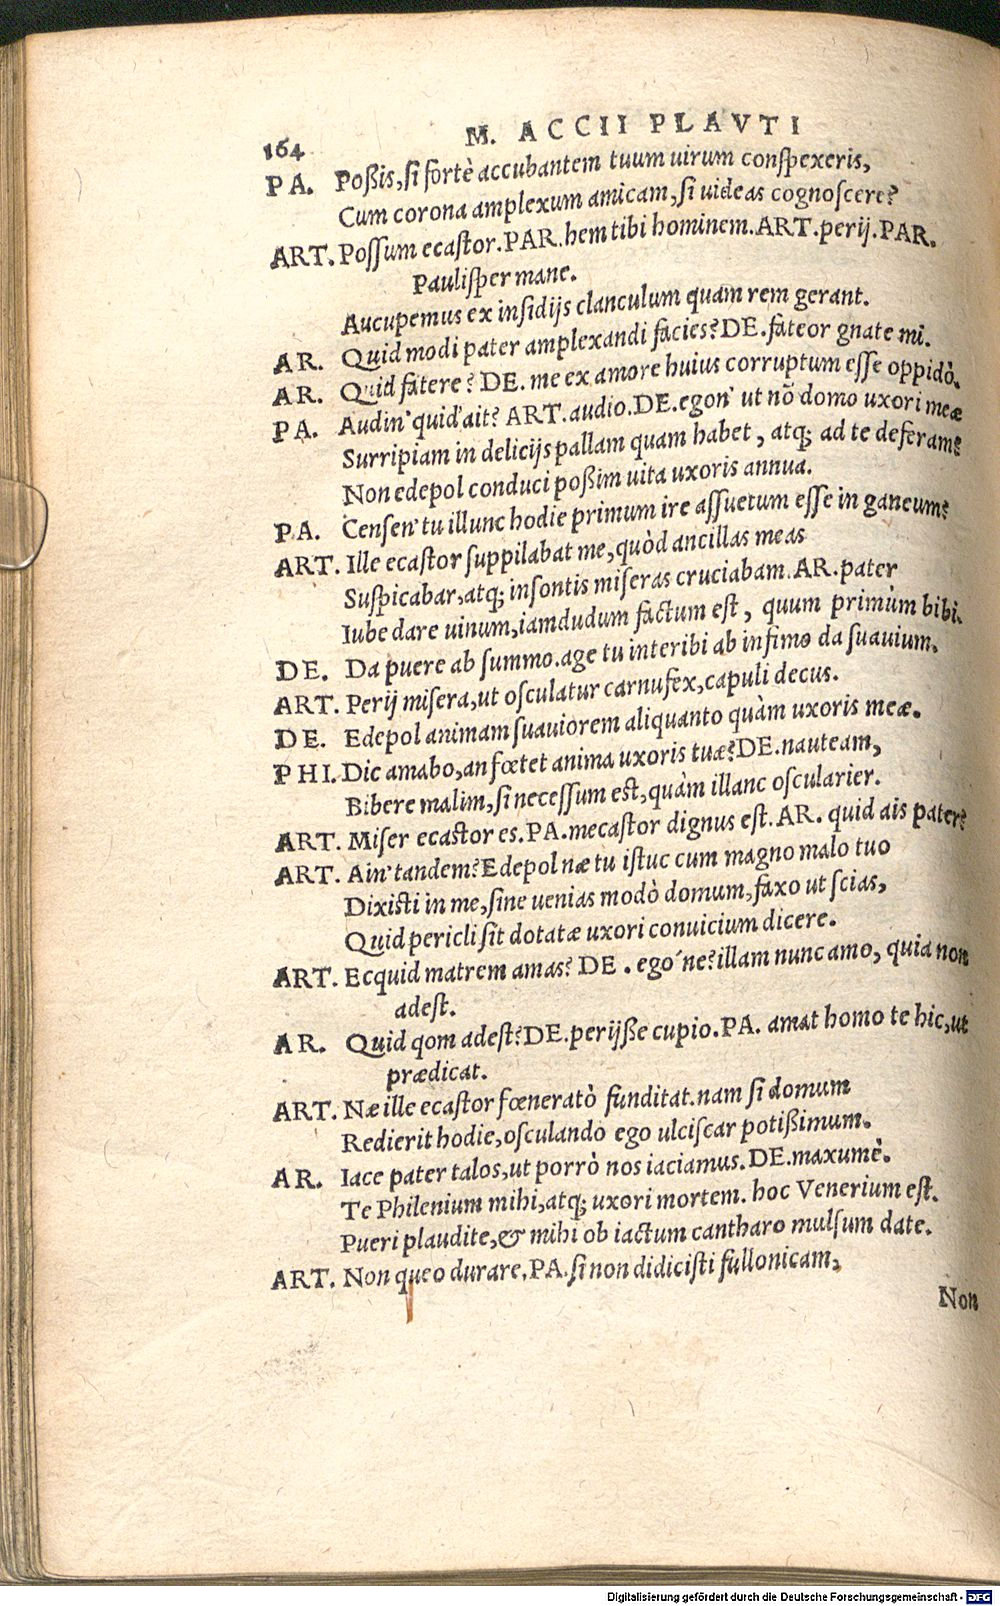 164 M. ACCII PLAVTI
PA. Poßis, si fortè accubantem tuum uirum conspexeris,
Cum corona amplexum amicam, si uideas cognoscere?
ART. Possum ecastor. PAR. hem tibi hominem. ART. perij. PAR.
Paulisper mane.
Aucupemus ex insidijs clanculum quam rem gerant.
AR. Quid modi pater amplexandi facies? DE. fateor gnate mi.
AR. Quid fatere? DE. me ex amore huius corruptum esse oppidò.
PA. Audin' quid' ait? ART. audio. DE. egon' ut nõ domo uxori meæ
Surripiam in delicijs pallam quam habet, atq; ad te deferam?
Non edepol conduci poßim uita uxoris annua.
PA. Censen' tu illunc hodie primum ire assuetum esse in ganeum?
ART. Ille ecastor suppilabat me, quòd ancillas meas
Suspicabar, atq; insontis miseras cruciabam. AR. pater
Iube dare uinum, iamdudum factum est, quum primùm bibi.
DE. Da puere ab summo. age tu interibi ab infimo da suauium.
ART. Perij misera, ut osculatur carnufex, capuli decus.
DE. Edepol animam suauiorem aliquanto quàm uxoris meæ.
PHI. Dic amabo, an fœtet anima uxoris tuæ? DE. nauteam,
Bibere malim, si necessum est, quàm illanc oscularier.
ART. Miser ecastor es. PA. mecastor dignus est. AR. quid ais pater?
ART. Ain' tandem? Edepol næ tu istuc cum magno malo tuo
Dixisti in me, sine uenias modò domum, faxo ut scias,
Quid pericli sit dotatæ uxori conuicium dicere.
ART. Ecquid matrem amas? DE. ego´ne? illam nunc amo, quia non
adest.
AR. Quid qom adest? DE. perijße cupio. PA. amat homo te hic, ut
prædicat.
ART. Næ ille ecastor fœneratò funditat. nam si domum
Redierit hodie, osculando ego ulciscar potißimum.
AR. Iace pater talos, ut porrò nos iaciamus. DE. maxumè.
Te Philenium mihi, atq; uxori mortem. hoc Venerium est.
Pueri plaudite, & mihi ob iactum cantharo mulsum date.
ART. Non queo durare. PA. si non didicisti fullonicam,
Non
Digitalisierung gefördert durch die Deutsche Forschungsgemeinschaft - DFG